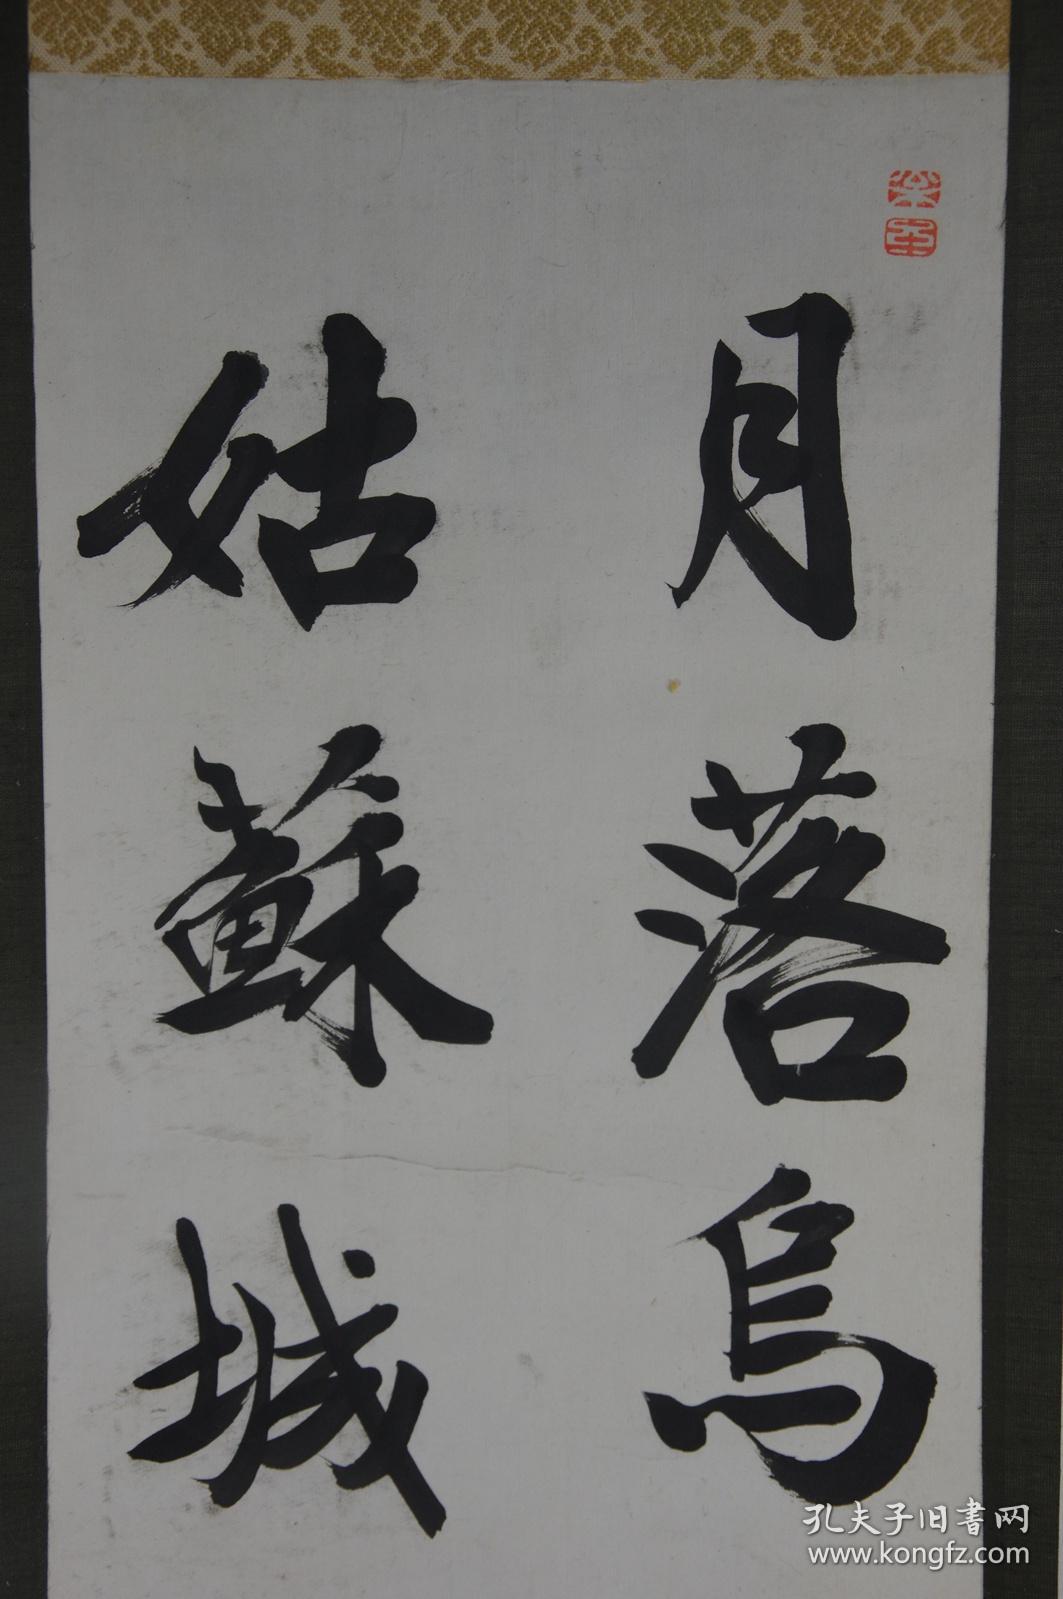 月落烏
姑蘇城
孔夫子旧書网
www.kongfz.com